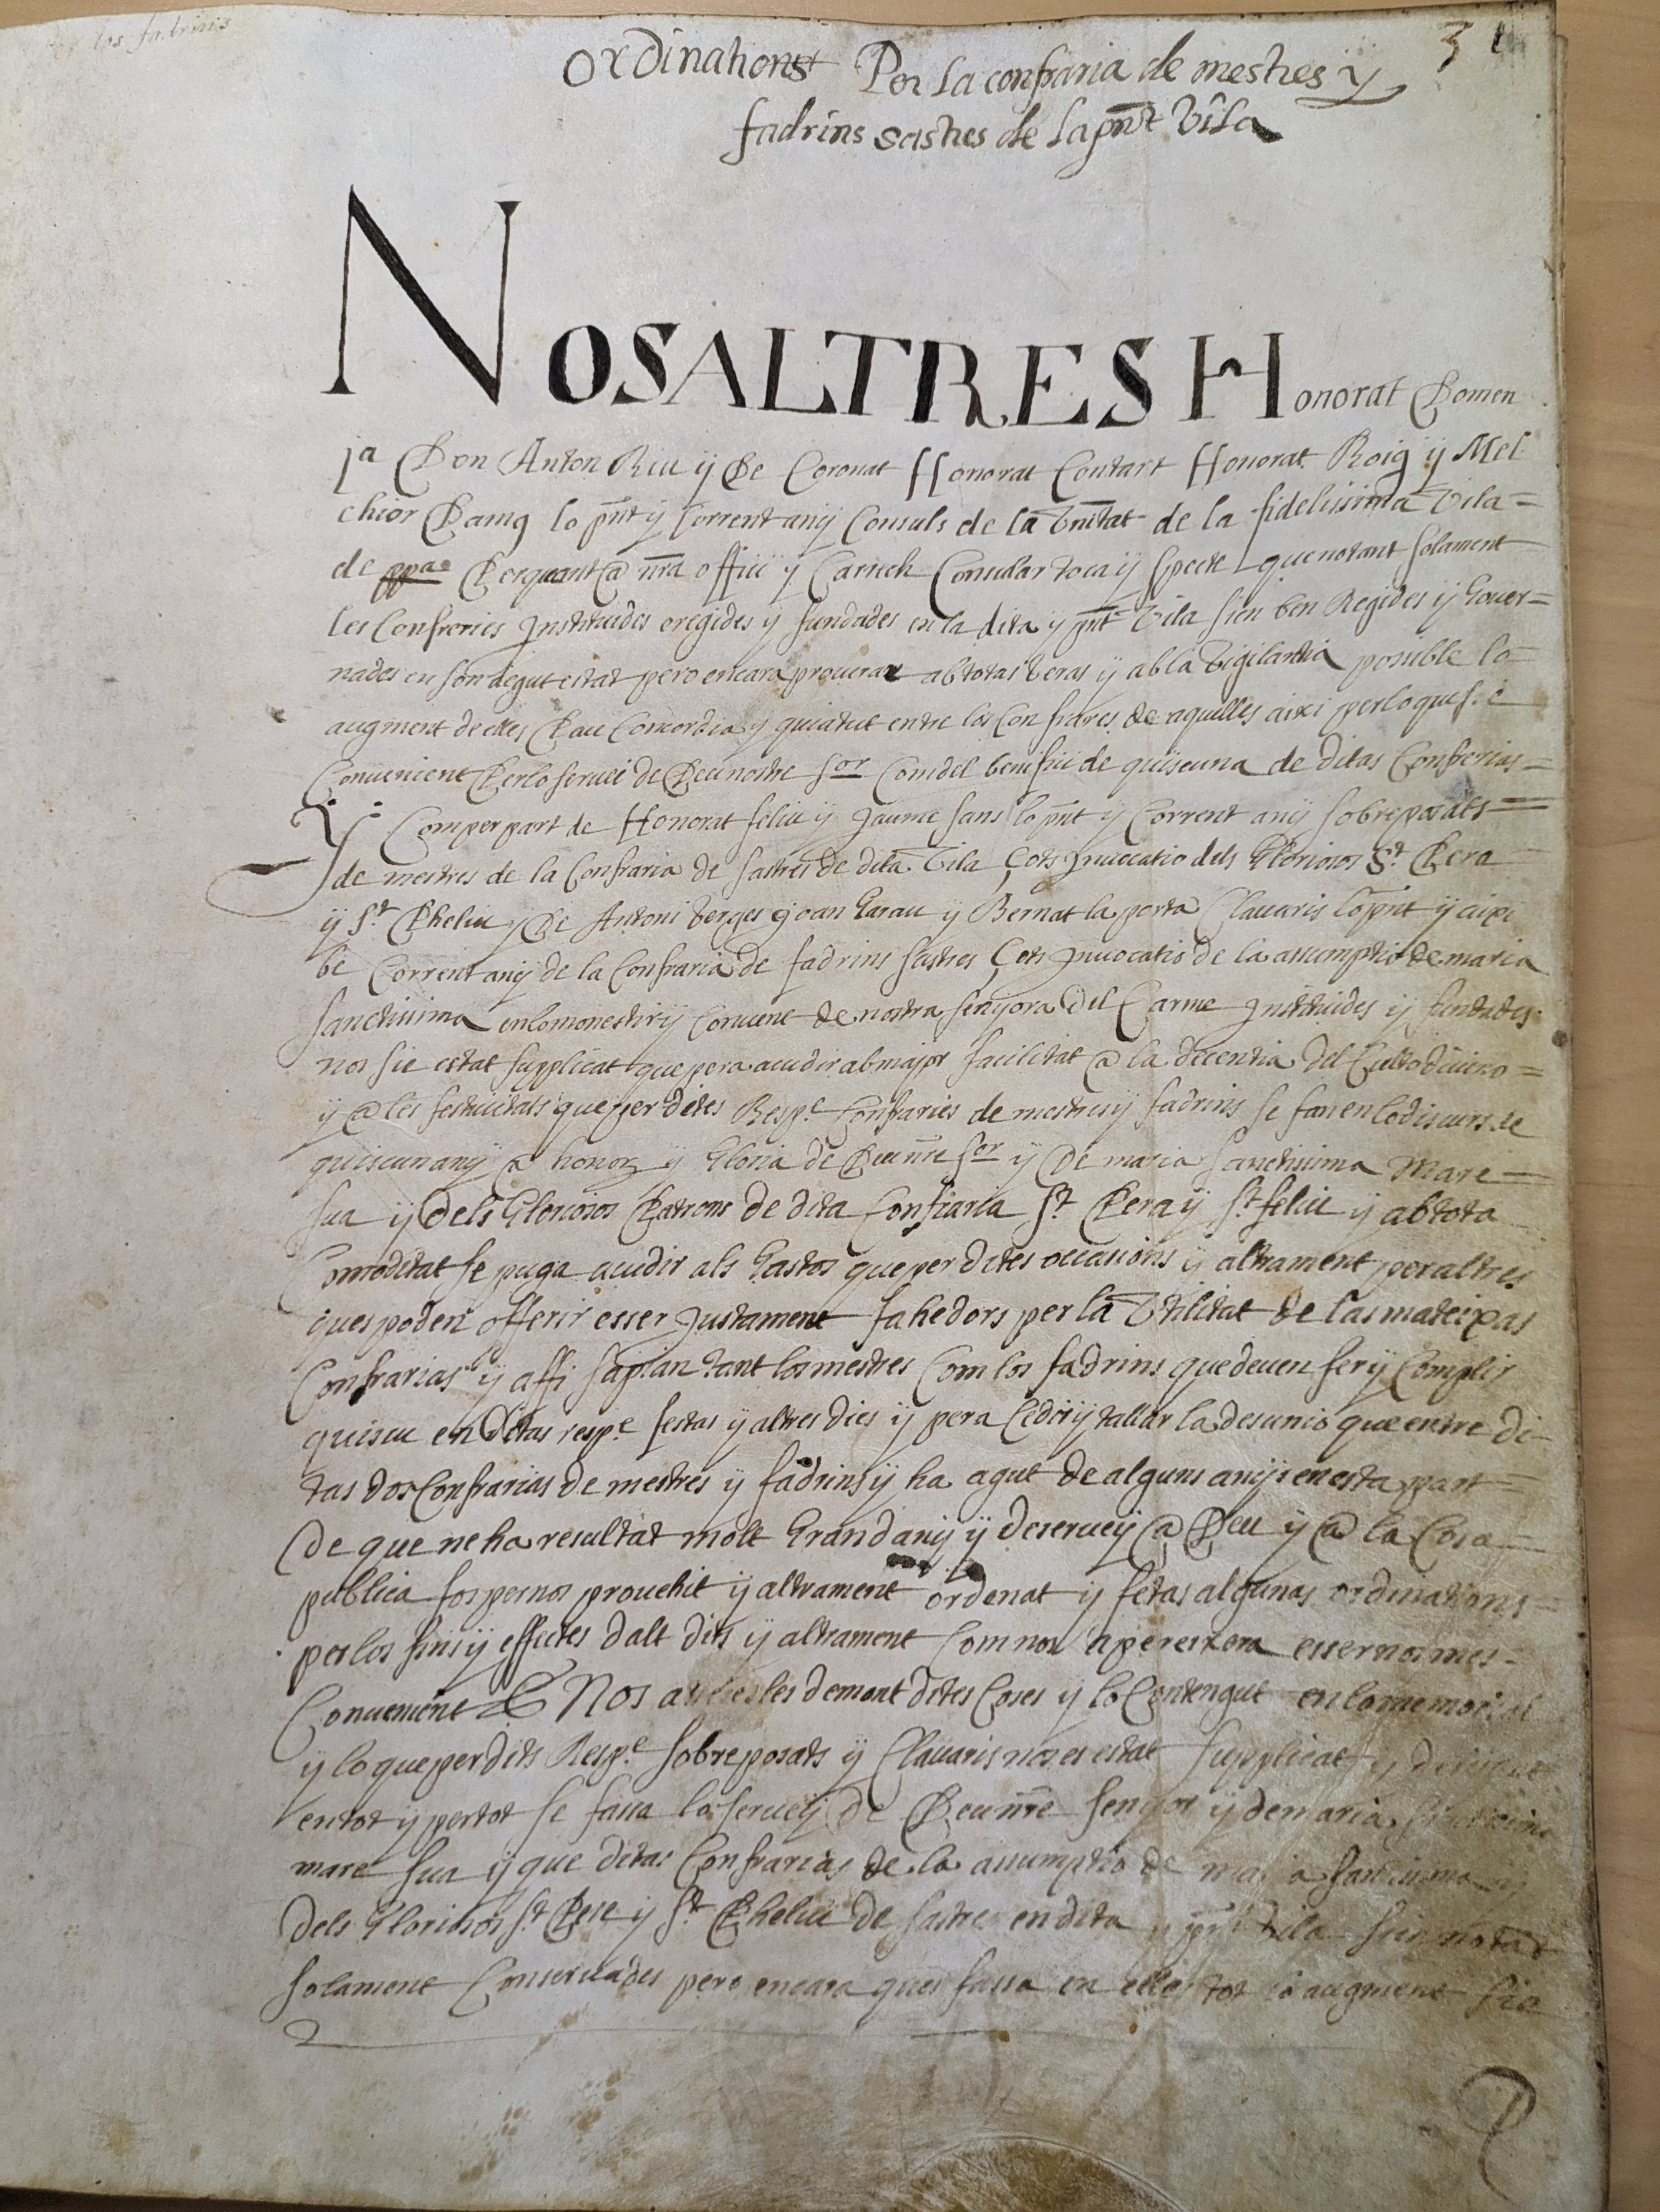 los fadrins
3
Ordinations Per la confraria de mestres y
fadrins sastres de la pnt Vila
NOSALTRES Honorat Domen
Ja Don Anton Riu ÿ De Coronat Honorat Contart Honorat Roig ÿ Mel
chior Damg lo pnt ÿ Corrent anÿ Consuls de la Vnitat de la fidelissima Vila =
de ppa Perquant @ nra offici ÿ Carrech Consular toca ÿ specte que notant solament
les Confreries Instituides eregides ÿ fundades en la dita ÿ pnt Vila sien ben Regides ÿ Gouer=
nades en son degut estat pero encara procurar ab totas veras ÿ ab la Vigilantia posible lo
augment de elles Pau Concordia ÿ quiatut entre los Confrares de aquelles aixi perloque sie
Conuenient Perlo seruei de Deu nostre sor Com del benifici de quiscuna de ditas Confrerias =
Y Com per part de Honorat feliu ÿ Jaume sans lo pnt ÿ Corrent anÿ sobreposats =
de mestres de la Confraria de sastres de dita Vila sots Inuocatio dels Gloriosos St Pera
ÿ St Pheliu ÿ De Antoni Verges Joan Garau ÿ Bernat la porta Clauaris lo pnt ÿ aixi
be Corrent anÿ de la Confraria de fadrins sastres sots Inuocatio de la assumptio de maria
sanctissima en lo monestir ÿ Conuent de nostra senyora Del Carme Instituides ÿ fundades
nos sie estat supplicat que pera acudir ab major facilitat @ la decentia del Culto diuino =
ÿ @ les festiuitats que per dites Respe Confraries de mestres ÿ fadrins se fan en lo discurs de
quiscun anÿ @ honor ÿ Gloria de Deu nre sor ÿ De maria sanctissima Mare =
sua ÿ dels Gloriosos Patrons de dita Confraria St Pera ÿ St feliu ÿ ab tota
Comoditat se puga acudir als Gastos que per dites occasions ÿ altrament per altres
ques poden offerir esser Justament fahedors per la Vtilitat de las mateixas
Confrarias ÿ affi sapian tant los mestres Com los fadrins que deuen fer ÿ Complir
quiscu en ditas respe festas ÿ altres dies ÿ pera Cedir ÿ tallar la desunio que entre di
tas dos Confrarias de mestres ÿ fadrins ÿ ha agut de alguns anÿs en esta part =
De que ne ha resultat molt Gran danÿ ÿ deserueÿ @ Deu ÿ @ la Cosa =
publica fos per nos prouehit ÿ altrament ordenat ÿ fetas algunas ordinations =
per los fins ÿ effectes dalt dits ÿ altrament Com nos apereixera esser nos mes =
Conuenient & Nos ateses les demont dites Coses ÿ lo Contengut en lo memorial
ÿ lo que per dits Respe sobreposats ÿ Clauaris nos es estat supplicat ÿ
en tot ÿ per tot se fassa lo serueÿ de Deu nre senyor ÿ de maria sanctissima
mare sua ÿ que ditas Confrarias de la assumptio de maria sanctissima ÿ
dels Gloriosos St Pere ÿ St Pheliu de sastres en dita ÿ pnt Vila sien notat
solament Conseruades pero encara ques fassa en elles tot lo augment sie